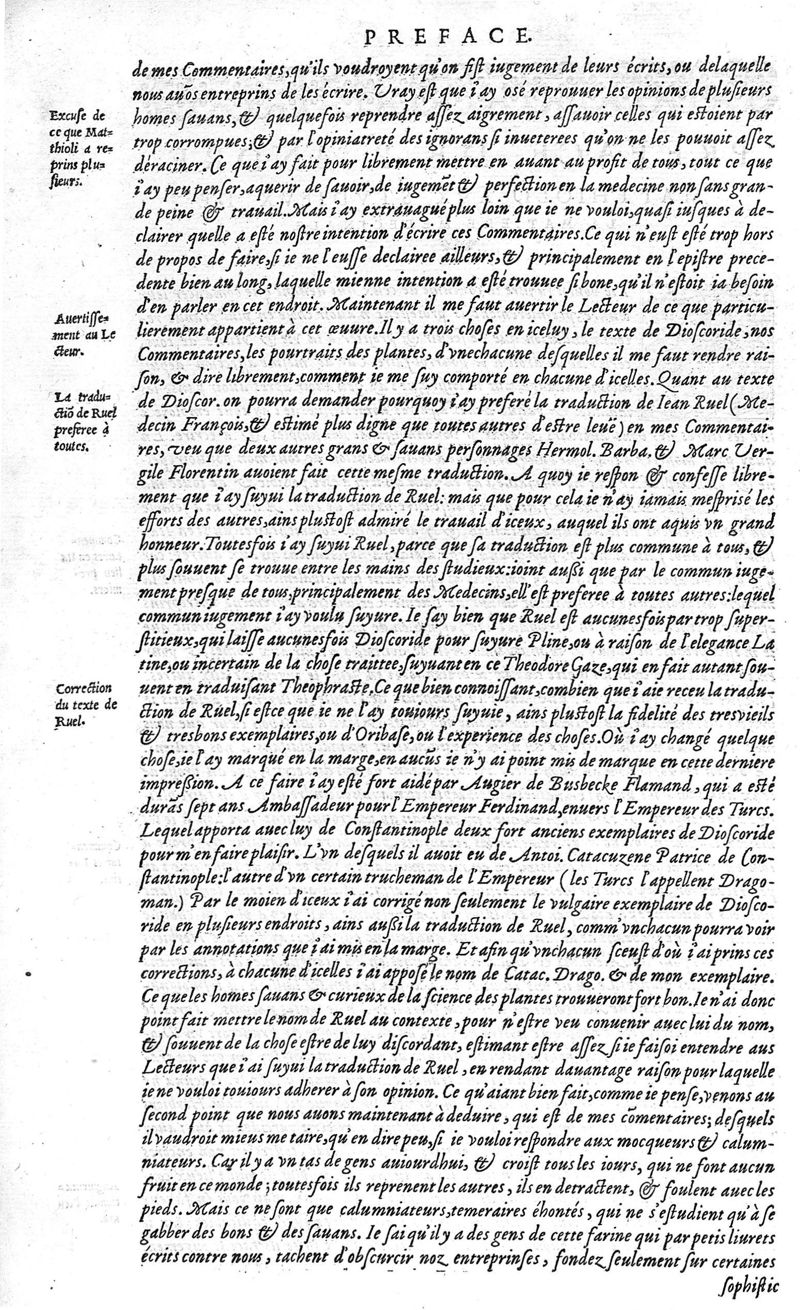 PREFACE.
de mes Commentaires, qu'ils voudroyent qu'on fist iugement de leurs écrits, ou delaquelle
nous auõs entreprins de les écrire. Vray est que i'ay osé reprouuer les opinions de plusieurs
Excuse de
ce que Mat-
thioli a re-
prins plu-
sieurs.
homes sauans, & quelquefois reprendre assez aigrement, assauoir celles qui estoient par
trop corrompues; & par l'opiniatreté des ignorans si inueterees qu'on ne les pouuoit assez
déraciner. Ce que i'ay fait pour librement mettre en auant au profit de tous, tout ce que
i'ay peu penser, aquerir de sauoir, de iugemẽt & perfection en la medecine non sans gran-
de peine & trauail. Mais i'ay extrauagué plus loin que ie ne vouloi, quasi iusques à de-
clairer quelle a esté nostre intention d'écrire ces Commentaires. Ce qui n'eust esté trop hors
de propos de faire, si ie ne l'eusse declairee ailleurs, & principalement en l'epistre prece-
dente bien au long, laquelle mienne intention a esté trouuee si bone, qu'il n'estoit ia besoin
d'en parler en cet endroit. Maintenant il me faut auertir le Lecteur de ce que particu-
Auertisse-
ment au Le
cteur.
lierement appartient à cet œuure. Il y a trois choses en iceluy, le texte de Dioscoride, nos
Commentaires, les pourtraits des plantes, d'vnechacune desquelles il me faut rendre rai-
son, & dire librement, comment ie me suy comporté en chacune d'icelles. Quant au texte
La tradu-
ctiõ de Ruel
preferee à
toutes.
de Dioscor. on pourra demander pourquoy i'ay preferé la traduction de Iean Ruel (Me-
decin François, & estimé plus digne que toutes autres d'estre leuë) en mes Commentai-
res, veu que deux autres grans & sauans personnages Hermol. Barba. & Marc Ver-
gile Florentin auoient fait cette mesme traduction. A quoy ie respon & confesse libre-
ment que i'ay suyui la traduction de Ruel: mais que pour cela ie n'ay iamais mesprisé les
efforts des autres, ains plustost admiré le trauail d'iceux, auquel ils ont aquis vn grand
honneur. Toutesfois i'ay suyui Ruel, parce que sa traduction est plus commune à tous, &
plus souuent se trouue entre les mains des studieux: ioint aussi que par le commun iuge-
ment presque de tous, principalement des Medecins, ell'est preferee à toutes autres: lequel
commun iugement i'ay voulu suyure. Ie say bien que Ruel est aucunesfois par trop super-
stitieux, qui laisse aucunesfois Dioscoride pour suyure Pline, ou à raison de l'elegance La
tine, ou incertain de la chose traittee, suyuant en ce Theodore Gaze, qui en fait autant sou-
Correction
du texte de
Ruel.
uent en traduisant Theophraste. Ce que bien connoissant, combien que i'aie receu la tradu-
ction de Ruel, si estce que ie ne l'ay toujours suyuie, ains plustost la fidelité des tresvieils
& tresbons exemplaires, ou d'Oribase, ou l'experience des choses. Où i'ay changé quelque
chose, ie l'ay marqué en la marge, en aucũs ie n'y ai point mis de marque en cette derniere
impression. A ce faire i'ay esté fort aidé par Augier de Busbecke Flamand, qui a esté
durãs sept ans Ambassadeur pour l'Empereur Ferdinand, enuers l'Empereur des Turcs.
Lequel apporta auec luy de Constantinople deux fort anciens exemplaires de Dioscoride
pour m'en faire plaisir. L'vn desquels il auoit eu de Antoi. Catacuzene Patrice de Con-
stantinople: l'autre d'vn certain trucheman de l'Empereur (les Turcs l'appellent Drago-
man.) Par le moien d'iceux i'ai corrigé non seulement le vulgaire exemplaire de Diosco-
ride en plusieurs endroits, ains aussi la traduction de Ruel, comm'vnchacun pourra voir
par les annotations que i'ai mis en la marge. Et afin qu'vnchacun sceust d'où i'ai prins ces
corrections, à chacune d'icelles i'ai apposé le nom de Catac. Drago. & de mon exemplaire.
Ce que les homes sauans & curieux de la science des plantes trouueront fort bon. Ie n'ai donc
point fait mettre le nom de Ruel au contexte, pour n'estre veu conuenir auec lui du nom,
& souuent de la chose estre de luy discordant, estimant estre assez si ie faisoi entendre aus
Lecteurs que i'ai suyui la traduction de Ruel, en rendant dauantage raison pour laquelle
ie ne vouloi toujours adherer à son opinion. Ce qu'aiant bien fait, comme ie pense, venons au
second point que nous auons maintenant à deduire, qui est de mes cõmentaires; desquels
il vaudroit mieus me taire, qu'en dire peu, si ie vouloi respondre aux mocqueurs & calum-
niateurs. Car il y a vn tas de gens auiourdhui, & croist tous les iours, qui ne font aucun
fruit en ce monde; toutesfois ils reprenent les autres, ils en detractent, & foulent auec les
pieds. Mais ce ne sont que calumniateurs, temeraires éhontés, qui ne s'estudient qu'à se
gabber des bons & des sauans. Ie sai qu'il y a des gens de cette farine qui par petis liurets
écrits contre nous, tachent d'obscurcir noz entreprinses, fondez seulement sur certaines
sophistic